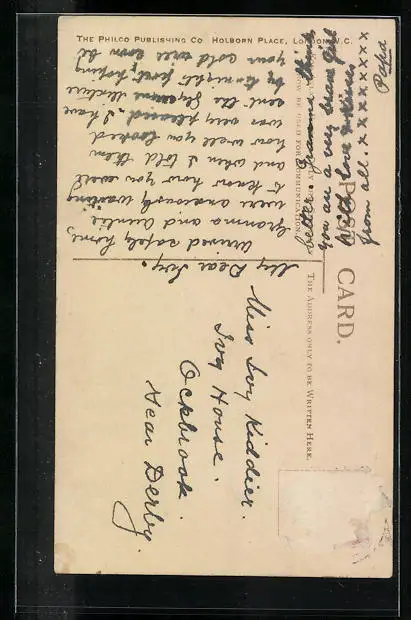 THE PHILCO PUBLISHING CO. HOLBORN PLACE, LONDON, W.C.
POST CARD.
THE ADDRESS ONLY TO BE WRITTEN HERE.
My Dear Ivy.
Arrived safely home,
Granma and Auntie
were anxiously waiting
to know how you were
and when I told them
how well you looked
was very pleased. I have
sent the Glycerine
by tonight's post hoping
your cold will soon be
better. Granma think
you are a very brave girl
with love & kisses
from all. x x x x x x x x x
Papa
Miss Ivy Kiddier.
Ivy House.
Ockbrook.
Near Derby.